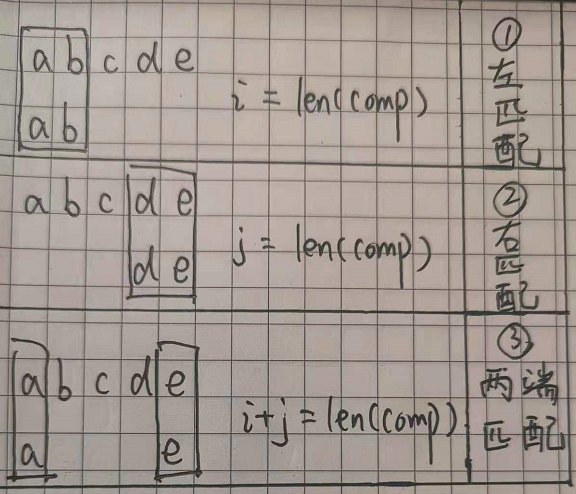 a b c d e
a b
i = len(comp)
①
左
匹
配
a b c d e
d e
j = len(comp)
②
右
匹
配
a b c d e
a e
i+j = len(comp)
③
两端
匹配